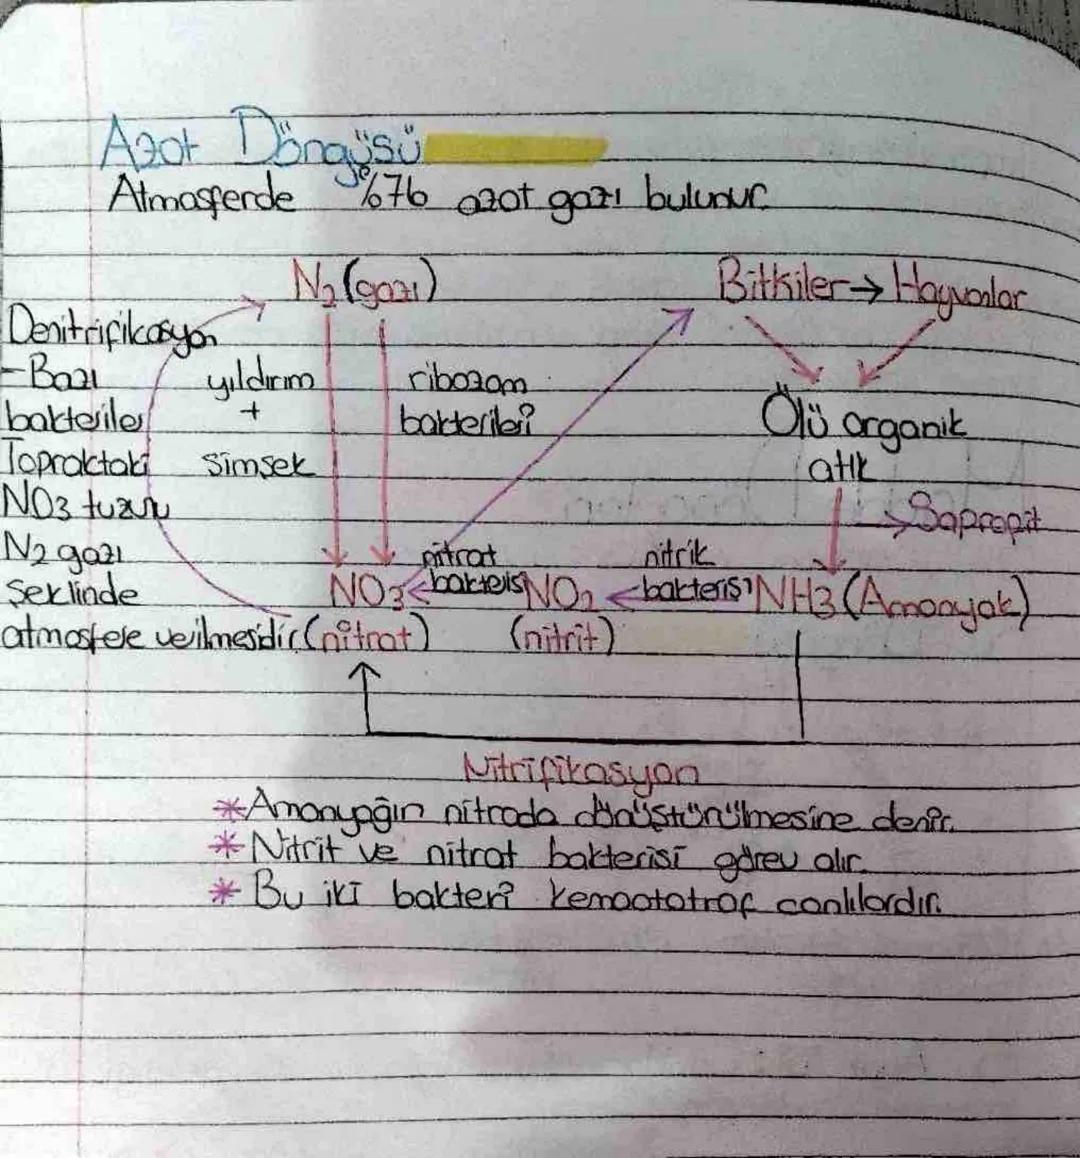 Azot Döngüsü
Atmosferde %76 azot gazı bulunur.
N2 (gazı)
Bitkiler → Hayvanlar
Denitrifikasyon
-Bazı
bakteriler
Topraktaki
NO3 tuzunu
N2 gazı
şeklinde
atmosfere verilmesidir.
yıldırım
+
şimşek
ribozom
bakterileri
Ölü organik
atık
→ Saprofit
nitrat
bakterisi
nitrik
bakterisi
NO3 ← NO2 ← NH3 (Amonyak)
(nitrat)
(nitrit)
Nitrifikasyon
* Amonyağın nitrada dönüştürülmesine denir.
* Nitrit ve nitrat bakterisi görev alır.
* Bu iki bakteri kemootatrof canlılardır.